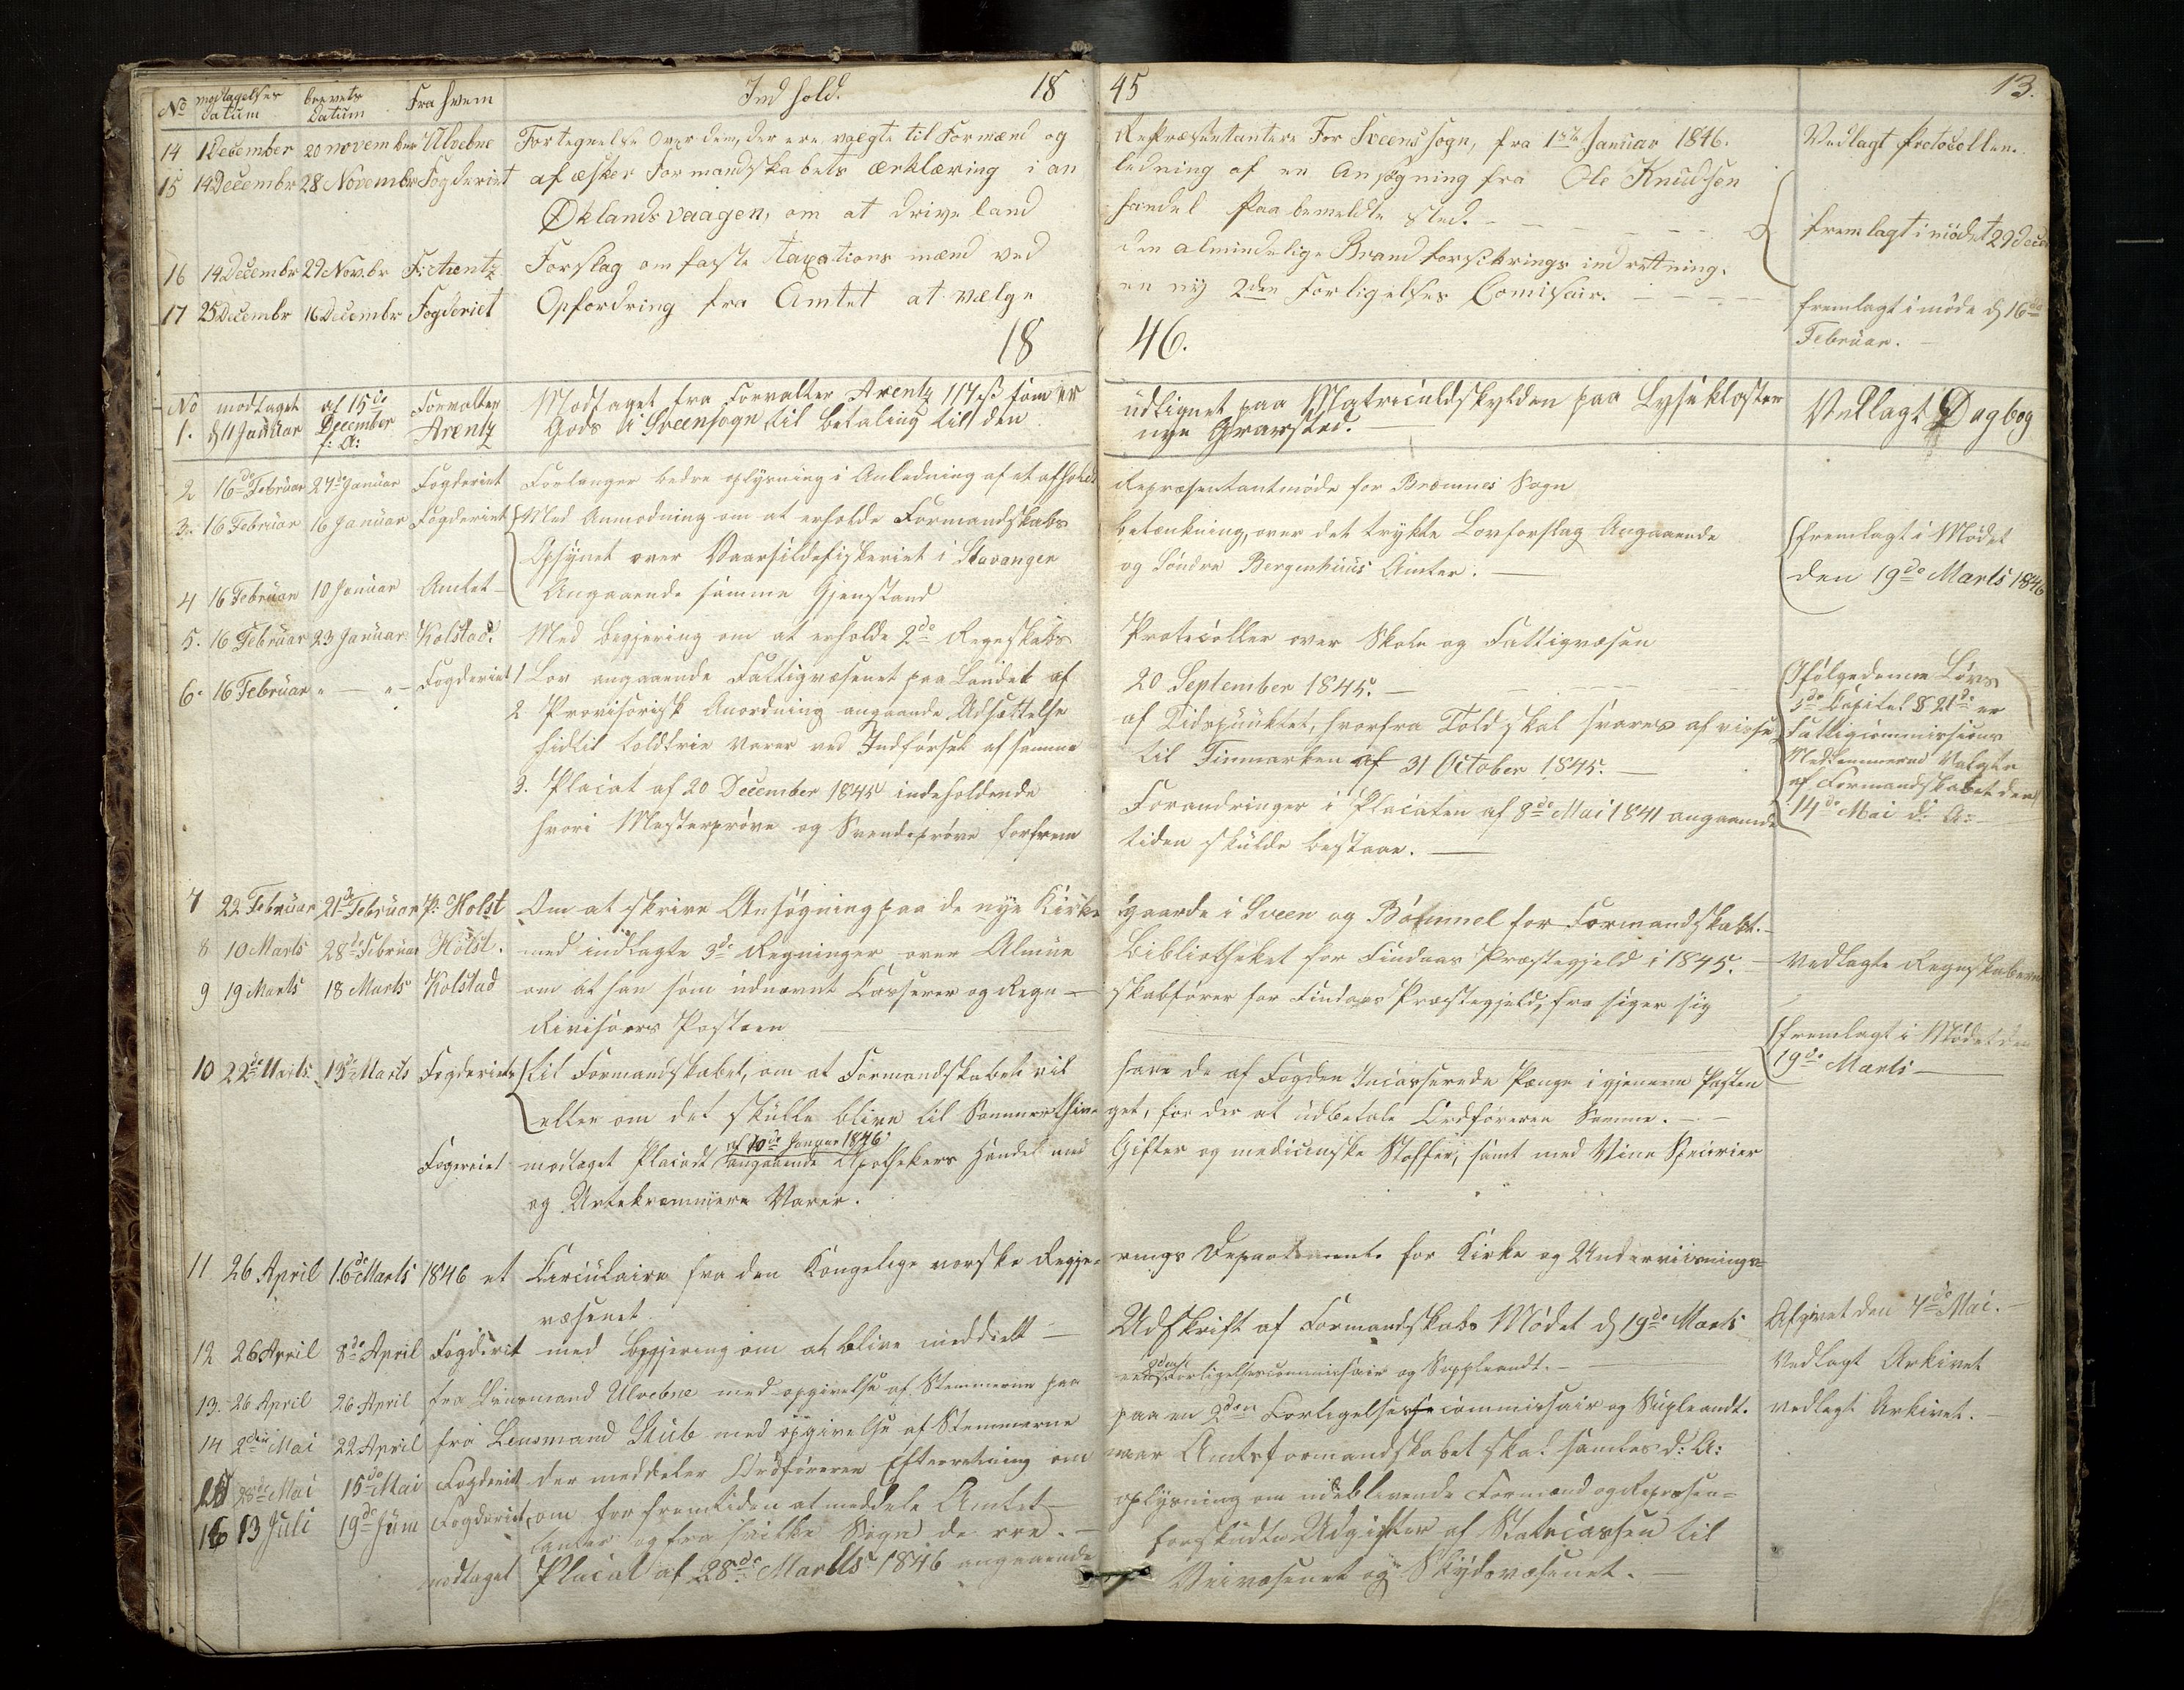 No modtagelses datum brevets datum Fra hvem Indhold. 18 45 13.
14 1 December 20 november Ulvebne Fortegnelse Over dem, der ere valgte til Formænd og Repræsentantere For Sveens sogn, fra 1ste Januar 1846. Vedlagt protocollen.
15 14 Decembr 28 Novembr Fogderiet af æsker Formandskabets Erklæring i an ledning af en Ansøgning fra Ole Knudsen
Øklandsvaagen, om at drive land handel paa bemeldte sted. fremlagt i mødet 29 Decbr
16 14 Decembr 29 Nov.br F: Arentz Forslag om faste taxations mænd ved den almindelige Brand forsikrings indretning.
17 25 Decembr 16 Decembr Fogderiet Opfordring fra Amtet at vælge en ny 2den Forligelses Comisair. fremlagt i møde d 16de
Februar.
18 46.
No modtaget af 15de Forvalter Modtaget fra Forvalter Arentz 117 ß som er udlignet paa Matriculdskylden paa Lysekloster Vedlagt Dagbog
1. d 11 Januar December f: A: Arentz Gods i Sveensogn til Betaling til den nye Gravsted.
2 16de Februar 27de Januar Fogderiet Forlanger bedre oplysning i Anledning af et afholdt Repræsentantmøde for Bremnes Sogn
3. 16 Februar 16 Januar Fogderiet Med Anmodning om at erholde Formandskabs betænkning over det trykte Lovforslag Angaaende fremlagt i Mødet
Opsynet over Vaarsildefiskeriet i Stavanger og Søndre Bergenhuus Amter. den 19de Marts 1846
4 16 Februar 10 Januar Amtet Angaaende samme Gjenstand
5. 16 Februar 23 Januar Kolstad. Med begjering om at erholde 2de Regnskabs Protocoller over Skole og Fattigvæsen
6. 16 Februar " — " — Fogderiet 1 Lov angaaende Fattigvæsenet paa Landet af 20 September 1845. Ifølge denne Lovs
2 Provisorisk Anordning angaaende Udsættelse af Tidspunktet, hvorfra Told skal svares af visse 1de Capitel § 21de er
hidtil toldfrie Varer ved Indførsel af samme til Finmarken af 31 October 1845. Fattigcommissions Medlemmerne Valgte
3. Placat af 20 December 1845 indeholdende Forandringer i Placaten af 8de Mai 1841 angaaende af Formandskabet den 14de Mai d: A:
hvori Mesterprøve og Svendeprøve for frem tiden skulde bestaae.
7 22 Februar 21de Februar p: Holst Om at skrive Ansøgning paa de nye Kirke gaarde i Sveen og Bømmel for Formandskabt.
8 10 Marts 28de Februar Holst. med indlagte 3de Regninger over Almue Bibliotheket for Findaas Præstegjeld i 1845. Vedlagte Regnskaberne
9 19 Marts 18 Marts Kolstad om at han som udnævnt Casserer og Regn- skabfører for Findaas Præstegjeld, fra siger sig
Revisors Posten fremlagt i Mødet den 19de Marts
10 22de Marts 13de Marts Fogderiet til Formandskabet, om at Formandskabet vil have de af Fogden Incasserede Penge igjenem Posten
eller om det skulle blive til Sommerthin get, for der at udbetale Ordføreren Samme.
Fogeriet modtaget Placadt af 10de Januar 1846 angaaende Apothekers Handel med Gifter og medicinske Stoffer, samt med Vine Specerier
og Urtekræmmere Varer.
11 26 April 16de Marts 1846 et Circulaire fra den Kongelige norske Regje- rings Departement for Kirke og Underviisnings-
væsenet
12 26 April 8de April Fogderit med begjering om at blive meddeelt Udskrift af Formandskabs Mødet d 19de Marts Afgivet den 7de Mai.
13. 26 April 26 April fra Lensmand Ulvebne med opgivelse af Stemmerne paa Forligelsescommissair og Suppleandt. Vedlagt Arkivet
14 2den Mai 22 April fra Lensmand Stub med opgivelse af Stemmerne paa en 2den Forligelsescommissair og Supleandt. vedlagt Arkivet.
15 28de Mai 15de Mai Fogderiet der meddeler Ordføreren Efterretning om naar Amtsformandskabet skal samles d: A:
16 13 Juli 19de Juni Fogderiet, om for fremtiden at meddele Amtet oplysning om udeblivende Formænd og Repræsen-
tanter og fra hvilke Sogn de ere. forskudte Udgifter af Statscassen til
modtaget Placat af 28de Martts 1846 angaaende Veivæsenet og Skydsvæsenet.